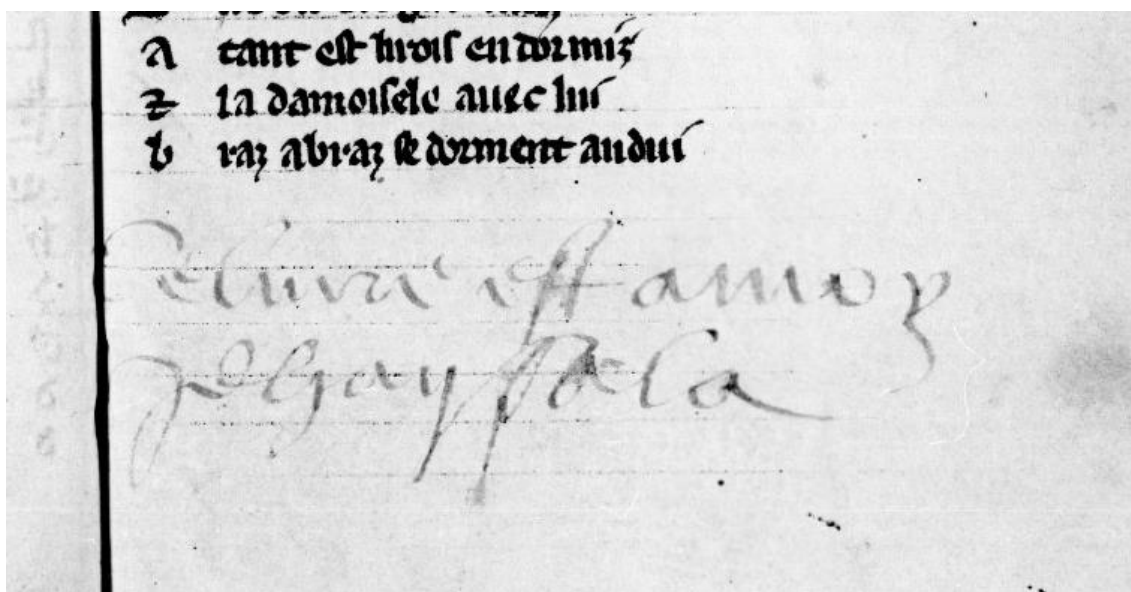 a tant est lirois endormiz
⁊ la damoisele auec lui
b raz abraz se dorment andui
Celiure est amoy
Jehan Sala